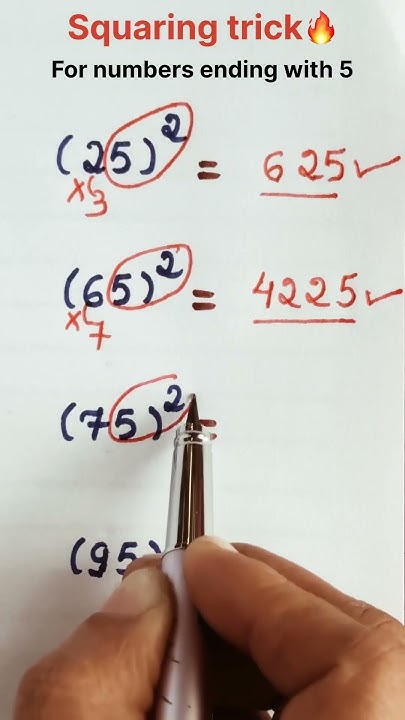 Squaring trick🔥
For numbers ending with 5
(25)² = 625✓
×3
(65)² = 4225✓
×7
(75)² =
(95)